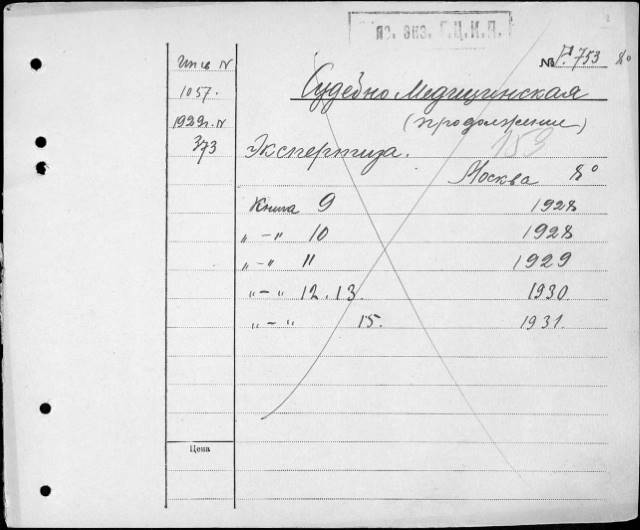 яз. экз. Г.Ц.К.П.
№ Г. 753 8°
Инв N
1057.
1929г. N
373
Судебно Медицинская
(продолжение)
159
Экспертиза.
Москва 8°
Книга 9 1928
" - " 10 1928
" - " 11 1929
" - " 12.13. 1930
" - " 15. 1931.
Цена